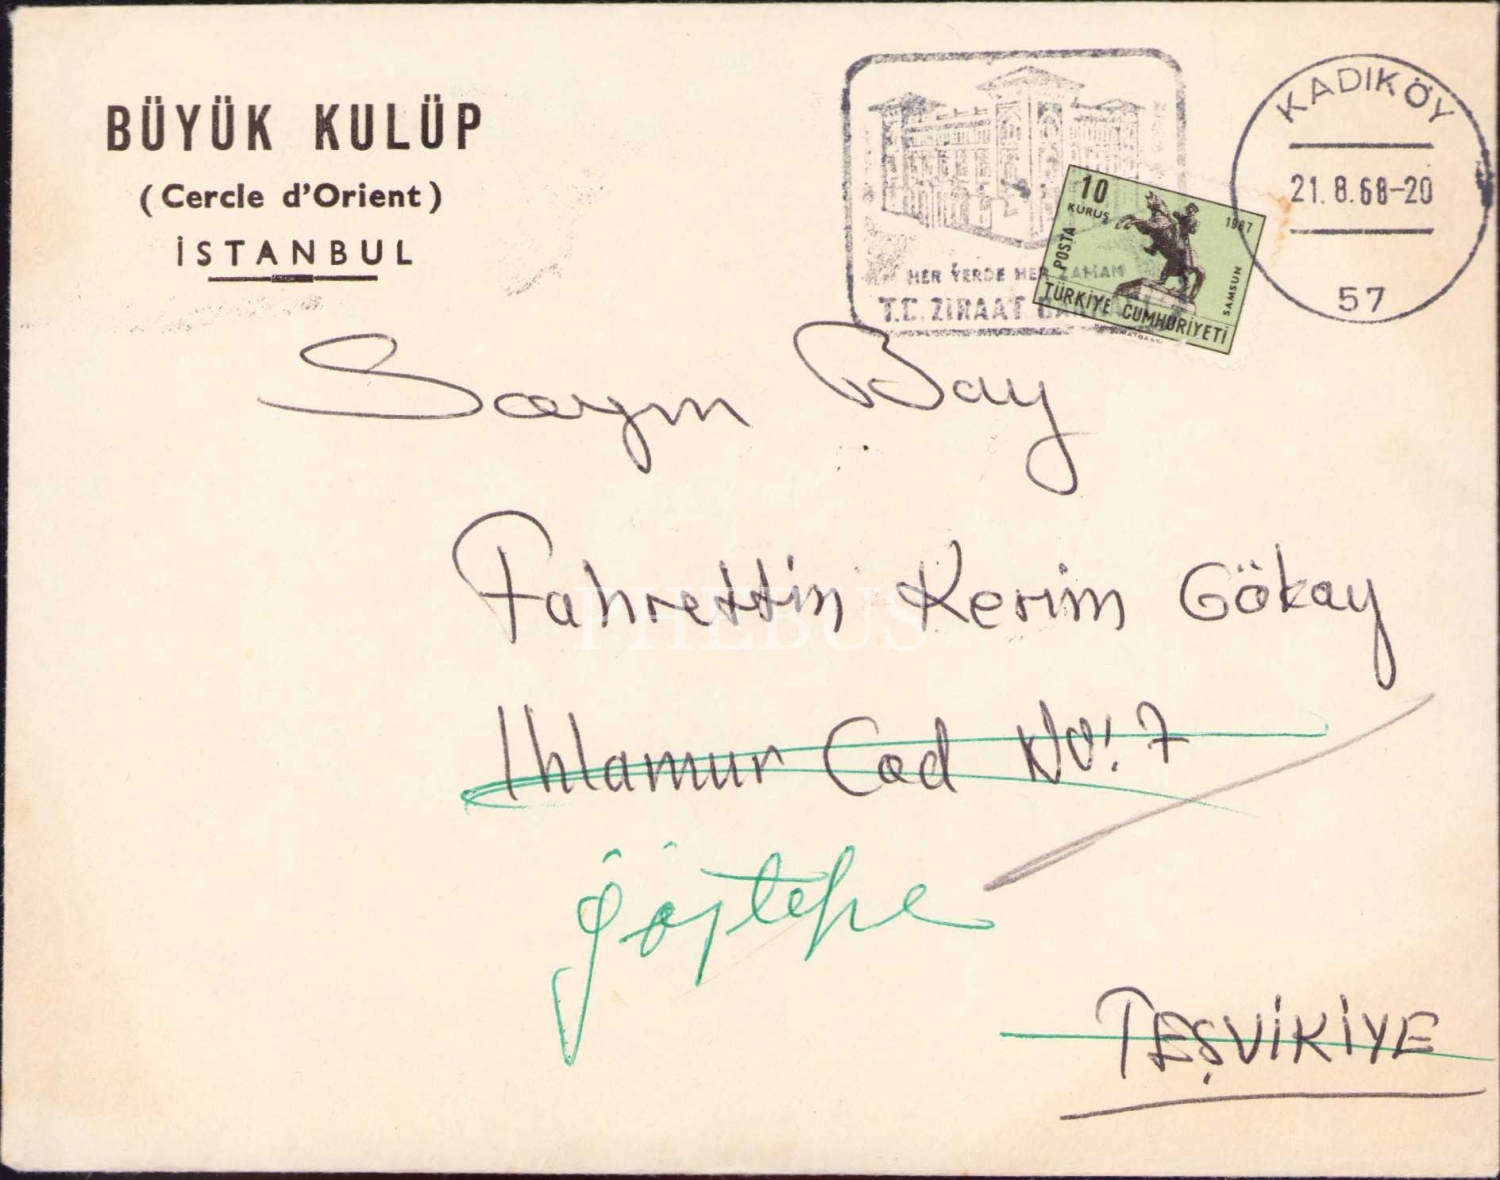 BÜYÜK KULÜP
(Cercle d'Orient)
İSTANBUL
HER YERDE HER ZAMAN
T.C. ZİRAAT BANKASI
10
KURUŞ
POSTA
1967
SAMSUN
TÜRKİYE CUMHURİYETİ
KADIKÖY
21.8.68-20
57
Sayın Bay
Fahrettin Kerim Gökay
Ihlamur Cad No: 7
göztepe
TEŞVİKİYE
PHEBUS